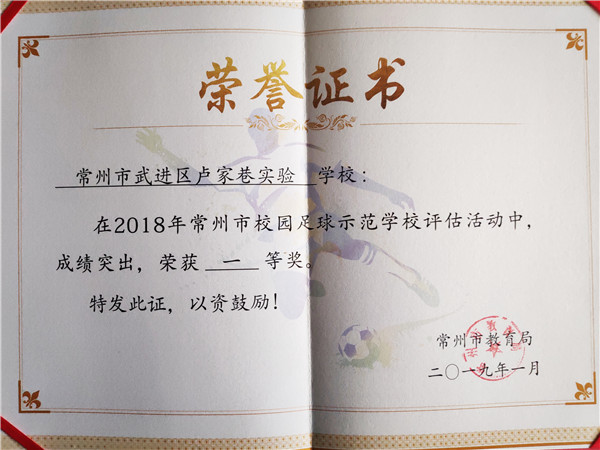 荣誉证书
常州市武进区卢家巷实验 学校：
在2018年常州市校园足球示范学校评估活动中，
成绩突出，荣获 一 等奖。
特发此证，以资鼓励！
常州市教育局
二〇一九年一月